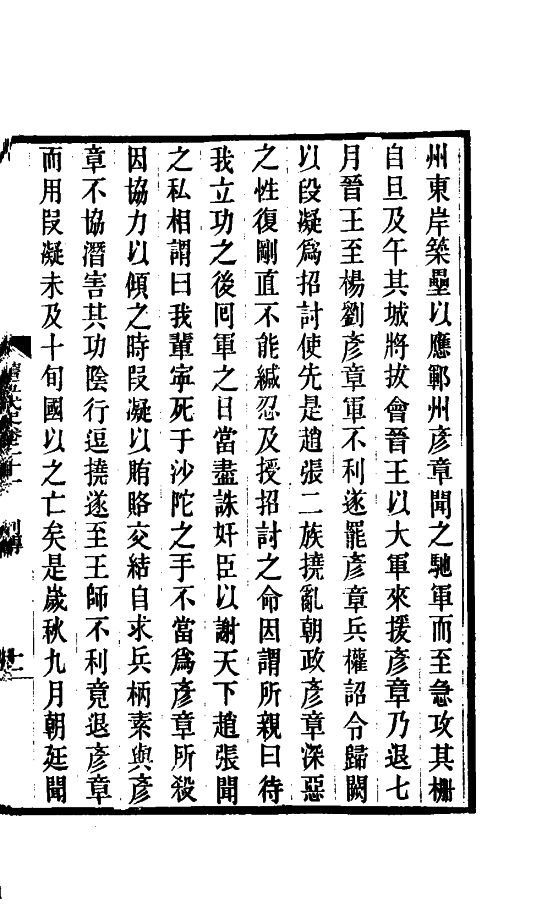 州東岸築壘以應鄆州彥章聞之馳軍而至急攻其柵
自旦及午其城將拔會晉王以大軍來援彥章乃退七
月晉王至楊劉彥章軍不利遂罷彥章兵權詔令歸闕
以段凝爲招討使先是趙張二族撓亂朝政彥章深惡
之性復剛直不能緘忍及授招討之命因謂所親曰待
我立功之後囘軍之日當盡誅奸臣以謝天下趙張聞
之私相謂曰我輩寜死于沙陀之手不當爲彥章所殺
因協力以傾之時段凝以賄賂交結自求兵柄素與彥
章不協潛害其功陰行逗撓遂至王師不利竟退彥章
而用段凝未及十旬國以之亡矣是歲秋九月朝廷聞
五代史卷二十一 列傳 十一